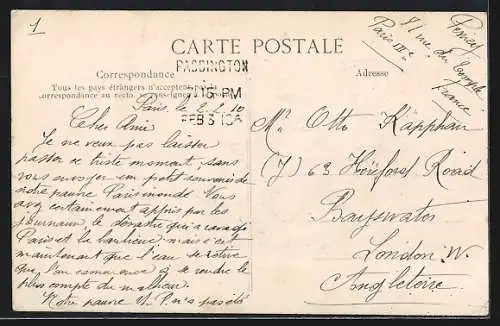 1
CARTE POSTALE
Correspondance
Tous les pays étrangers n'acceptent pas la
correspondance au recto, se renseigner à la poste
PADDINGTON
15 PM
FEB 3 10
Adresse
Paris IIIe
81 rue du Temple
France
Paris le 2.2.10
Cher Ami
Je ne veux pas laisser
passer ce triste moment sans
vous envoyer un petit souvenir de
notre pauvre Paris inondé Vous
avez certainement appris par les
journaux le désastre qui a ravagé
Paris et la banlieue; mais c'est
maintenant que l'eau se retire
que l'on commence à se rendre le
plus compte du malheur.
Notre pauvre U.P. n'a pas été
Mr Otto Kapphan
(J) 63 Hereford Road
Bayswater
London W.
Angleterre